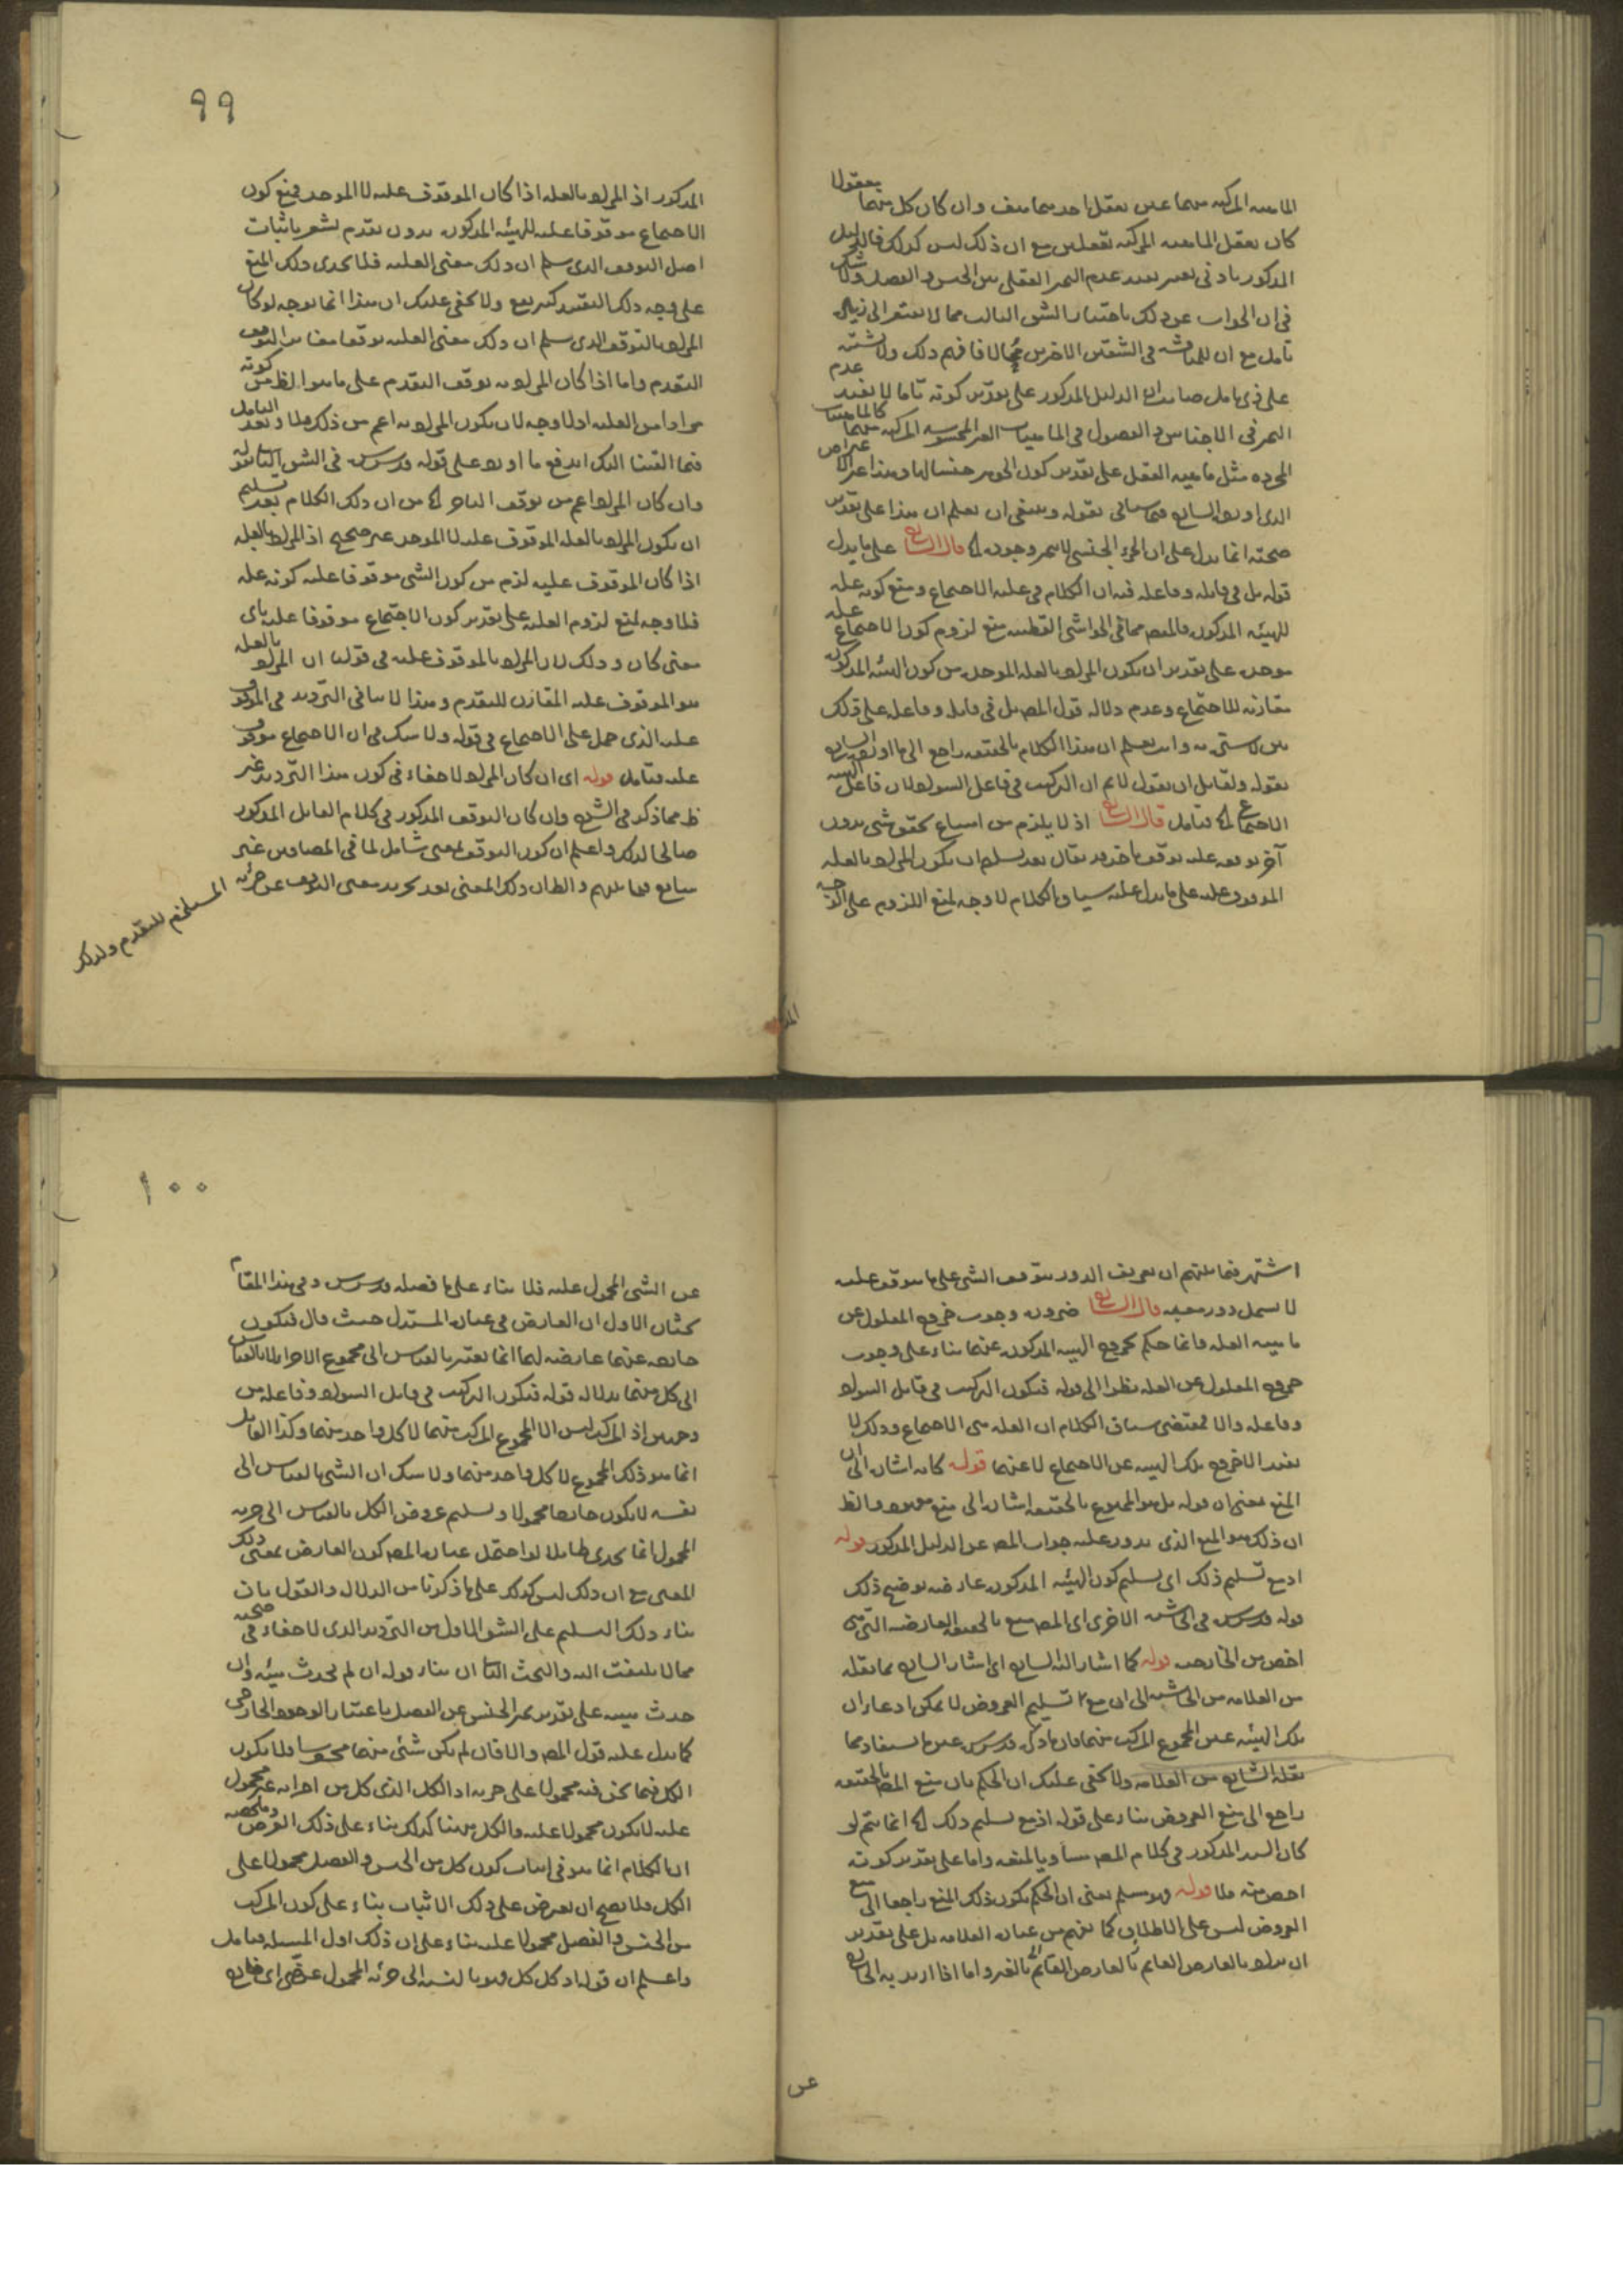 الماهيه المركبه منهما عين تعقل احديهما وان كان كل منهما بمعقولا
كان تعقل الماهيه المركبه تعقلين مع ان ذلك ليس كذلك فالدليل
المذكور عدم التميز العقلى بين الجنس و الفصل ولا شك
فى ان الجواب عن ذلك باختيار الشق الثالث مما لا يفتقر الى زياده
تامل مع ان للمناقشه فى الشقين الاخرين مجالا فافهم ذلك ولا
على ذى تامل ان الدليل المذكور على تقدير كونه تاما لا يفيد عدم
التميز فى الاجناس و الفصول فى الماهيات الغير المحسوسه المركبه منهما كالماهيات
المجرده مثل ماهيه العقل على تقدير كون الجوهر جنسا لها وهذا
الذى اورده الشارح فيما سياتى بقوله وينبغى ان يعلم ان هذا على تقدير
صحته انما يدل على ان الجزء الجنسى وجوده الخ قال الشارح على ما يدل
قوله بل فى قابله وفاعله فيه ان الكلام فى عليه الاجتماع ومنع كونه عله
للهيئه المذكوره والمفهوم مما فى الحواشى القطبيه منع لزوم كون الاجتماع عله
موجده على تقدير ان يكون المراد بالعله الموجد من كون الهيئه المذكوره
مقارنه للاجتماع وعدم دلاله قول المص بل فى قابله وفاعله على ذلك
وانت تعلم ان هذا الكلام بالحقيقه راجع الى ما اورده الشارح
بقوله ولقايل ان يقول لا نم ان التركيب فى فاعل السواد لان فاعل
الاجتماع الخ فتامل قال الشارح اذ لا يلزم من امتناع تحقق شى بدون
آخر توقفه عليه توقف تاخر قد يقال بعد تسليم ان يكون المراد بالعله
الموقوف عليه على ما يدل عليه سياق الكلام لا وجه لمنع اللزوم على الوجه
المذ
٩٩
المذكور اذ المراد بالعله اذا كان الموقوف عليه لا الموجد فمنع كون
الاجتماع موقوفا عليه للهيئه المذكوره بدون تقدم يشعر باثبات
اصل التوقف الذى سلم ان ذلك معنى العليه فلا يجدى ذلك المنع
على وجه ذلك التقييد كثير نفع ولا يخفى عليك ان هذا انما يوجه لو كان
المراد بالتوقف الذى سلم ان ذلك معنى العليه توقفا مغايرا لتوقف
التقدم واما اذا كان المراد به توقف التقدم على ما هو الظ من كونه
مرادا من العليه اولا وجه لان يكون المراد به اعم من ذلك فلا وبعد التامل
فيما القينا اليك اندفع ما اورد على قوله قدس سره فى الشق الثانى
وان كان المراد اعم من توقف التاخر الخ من ان ذلك الكلام بعد تسليم
ان يكون المراد بالعله الموقوف عليه لا الموجد غير صحيح اذ المراد بالعله
اذا كان الموقوف عليه لزم من كون الشى موقوفا عليه كونه عله
فلا وجه لمنع لزوم العليه على تقدير كون الاجتماع موقوفا عليه باى
معنى كان وذلك لان المراد بالموقوف عليه فى قولنا ان المراد بالعله
هو الموقوف عليه المقارن للتقدم وهذا لا ينافى الترديد فى الموقوف
عليه الذى حمل على الاجتماع فى قوله ولا شك فى ان الاجتماع موقوف
عليه فتامل قوله اى ان كان المراد لا خفاء فى كون هذا الترديد غير
ظ مما ذكر فى الشرح وان كان التوقف المذكور فى كلام القايل المذكور
صالحا لذلك واعلم ان كون التوقف بمعنى شامل لما فى المضافين غير
شايع فيما بينهم والظ ان ذلك المعنى بعد تجريد معنى التوقف عن جزئه
المستلزم للتقدم ولذلك
اشتهر فيما بينهم ان تعريف الدور بتوقف الشى على ما يتوقف عليه
لا يشمل دور معيه قال الشارح ضروره وجوب خروج المعلول عن
ماهيه العله فانما حكم بخروج الهيئه المذكوره عنهما بناء على وجوب
خروج المعلول عن العله نظرا الى قوله فيكون التركيب فى قابل السواد
وفاعله والا فمقتضى سياق الكلام ان العله هى الاجتماع وذلك لا
يفيد الا خروج تلك الهيئه عن الاجتماع لا عنهما قوله كانه اشاره الى ان
المنع يعنى ان قوله بل هو المجموع بالحقيقه اشاره الى منع والظ
ان ذلك هو المنع الذى يدور عليه جواب المص عن الدليل المذكور قوله
اذ مع تسليم ذلك اى تسليم كون الهيئه المذكوره عارضه توضيح ذلك
قوله قدس سره فى الحاشيه الاخرى اى المص منع بالحقيقه العارضه التى هى
اخص من الخارجيه قوله كما اشار اليه الشارح اى اشار الشارح بما نقله
من العلامه من الحاشيه الى ان مع تسليم العروض لا يمكن ادعاء ان
تلك الهيئه عين المجموع المركب منهما فان ما ذكره قدس سره عين ما يستفاد مما
نقله الشارح من العلامه ولا يخفى عليك ان الحكم بان منع المص بالحقيقه
راجع الى منع العروض بناء على قوله اذ مع تسليم ذلك الخ انما يتم لو
كان السند المذكور فى كلام المص مساويا لمنعه واما على تقدير كونه
اخص منه فلا قوله وهو مسلم يعنى ان الحكم بكون ذلك المنع راجعا الى منع
العروض ليس على الاطلاق كما يفهم من عباره العلامه بل على تقدير
ان يراد بالعارض القايم بالعارض القايم بالغير واما اذا اريد به الخارج
عن
١٠٠
عن الشى المحمول عليه فلا بناء على ما فصله قدس سره وفى هذا المقام
بحثان الاول ان العارض فى عباره المستدل حيث قال فيكون
خارجه عنهما عارضه لهما انما يعتبر بالقياس الى مجموع الاجزاء لا بالقياس
الى كل منهما بدلاله قوله فيكون التركيب فى قابل السواد وفاعله من
وجهين اذ المركب ليس الا المجموع المركب منهما لا كل واحد منهما وكذا القابل
انما هو ذلك المجموع لا كل واحد منهما ولا شك ان الشى بالقياس الى
نفسه لا يكون خارجا محمولا وتسليم عروض الكل بالقياس الى جزئه
المحمول انما يجدى طايلا لو احتمل عباره المص كون العارض بمعنى ذلك
المعنى مع ان ذلك ليس كذلك على ما ذكرنا من الدلاله والقول بان
بناء ذلك التسليم على الشق الاول من الترديد الذى لا خفاء فى صحته
مما لا يلتفت اليه والبحث الثانى ان بناء قوله ان لم يحدث هيئه وان
حدث هيئه على تقدير تميز الجنس عن الفصل باعتبار الوجود الخارجى
كما يدل عليه قول المص والا فان لم يكن شئ منهما محسوسا فلا يكون
الكل فيما نحن فيه محمولا على جزئه اذ الكل الذى كل من اجزائه غير محمول
عليه لا يكون محمولا عليه والكل هنا كذلك بناء على ذلك الفرض
ان الكلام انما هو فى اثبات كون كل من الجنس و الفصل محمولا على
الكل فلا يصح ان يعرض على ذلك الاثبات بناء على كون المركب
من الجنس و الفصل محمولا عليه بناء على ان ذلك اول المسئله فتامل
واعلم ان قوله اذ كل كل فهو بالنسبه الى جزئه المحمول عرضى اى خارج